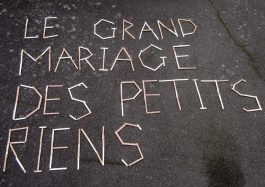 LE GRAND
MARIAGE
DES PETITS
RIENS